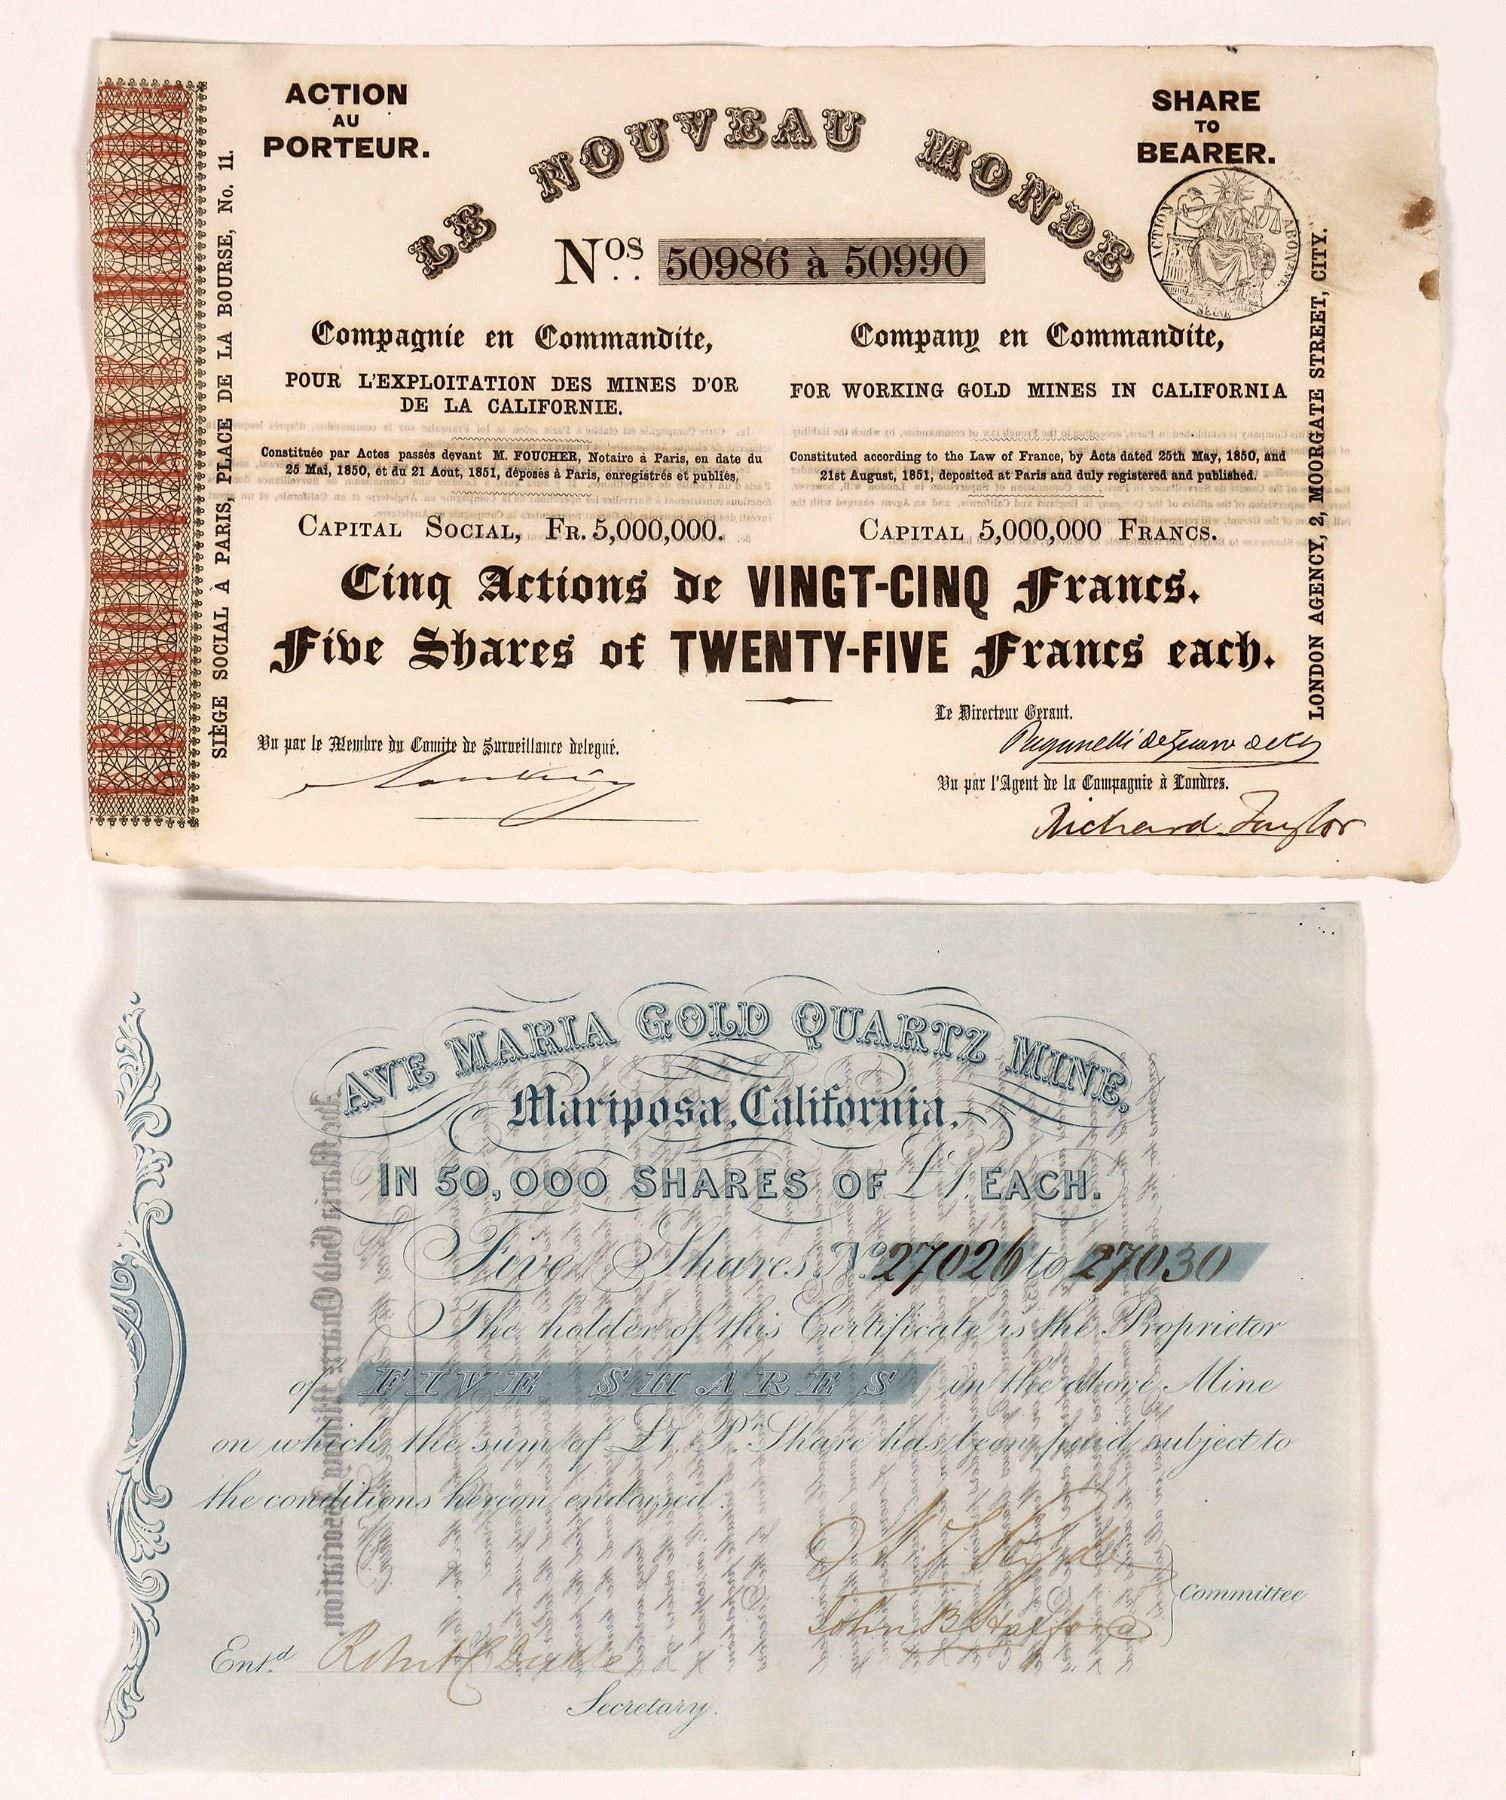 ACTION
AU
PORTEUR.
SHARE
TO
BEARER.
LE NOUVEAU MONDE
Nos 50986 à 50990
ACTION ABONNE.
SEINE
SIÈGE SOCIAL À PARIS, PLACE DE LA BOURSE, No. 11.
LONDON AGENCY, 2, MOORGATE STREET, CITY.
Compagnie en Commandite,
POUR L'EXPLOITATION DES MINES D'OR
DE LA CALIFORNIE.
Constituée par Actes passés devant M. FOUCHER, Notaire à Paris, en date du
25 Mai, 1850, et du 21 Aout, 1851, déposés à Paris, enregistrés et publiés,
CAPITAL SOCIAL, FR. 5,000,000.
Company en Commandite,
FOR WORKING GOLD MINES IN CALIFORNIA
Constituted according to the Law of France, by Acts dated 25th May, 1850, and
21st August, 1851, deposited at Paris and duly registered and published.
CAPITAL 5,000,000 FRANCS.
Cinq Actions de VINGT-CINQ Francs.
Five Shares of TWENTY-FIVE Francs each.
Vu par le Membre du Comite de Surveillance delegué.
Le Directeur Gerant.
Vu par l'Agent de la Compagnie à Londres.
Richard Taylor
AVE MARIA GOLD QUARTZ MINE,
Mariposa, California.
IN 50,000 SHARES OF £1 EACH.
Five Shares No. 27026 to 27030
The holder of this Certificate is the Proprietor
of FIVE SHARES in the above Mine
on which the sum of £1. Pr. Share has been paid subject to
the conditions hereon endorsed.
Committee
John B Stafford
Entd
Secretary.